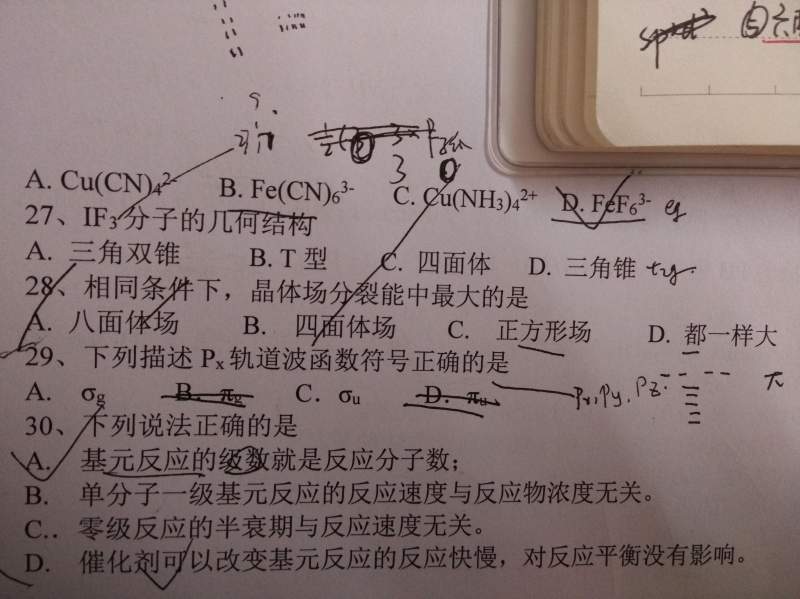 A. Cu(CN)₄²⁻ B. Fe(CN)₆³⁻ C. Cu(NH₃)₄²⁺ D. FeF₆³⁻ eg
27、IF₃分子的几何结构
A. 三角双锥 B. T 型 C. 四面体 D. 三角锥 t₂g.
28、相同条件下，晶体场分裂能中最大的是
A. 八面体场 B. 四面体场 C. 正方形场 D. 都一样大
29、下列描述 Pₓ 轨道波函数符号正确的是
A. σg B. πg C. σu D. πu Px, Py, Pz.
30、下列说法正确的是
A. 基元反应的级数就是反应分子数；
B. 单分子一级基元反应的反应速度与反应物浓度无关。
C.. 零级反应的半衰期与反应速度无关。
D. 催化剂可以改变基元反应的反应快慢，对反应平衡没有影响。